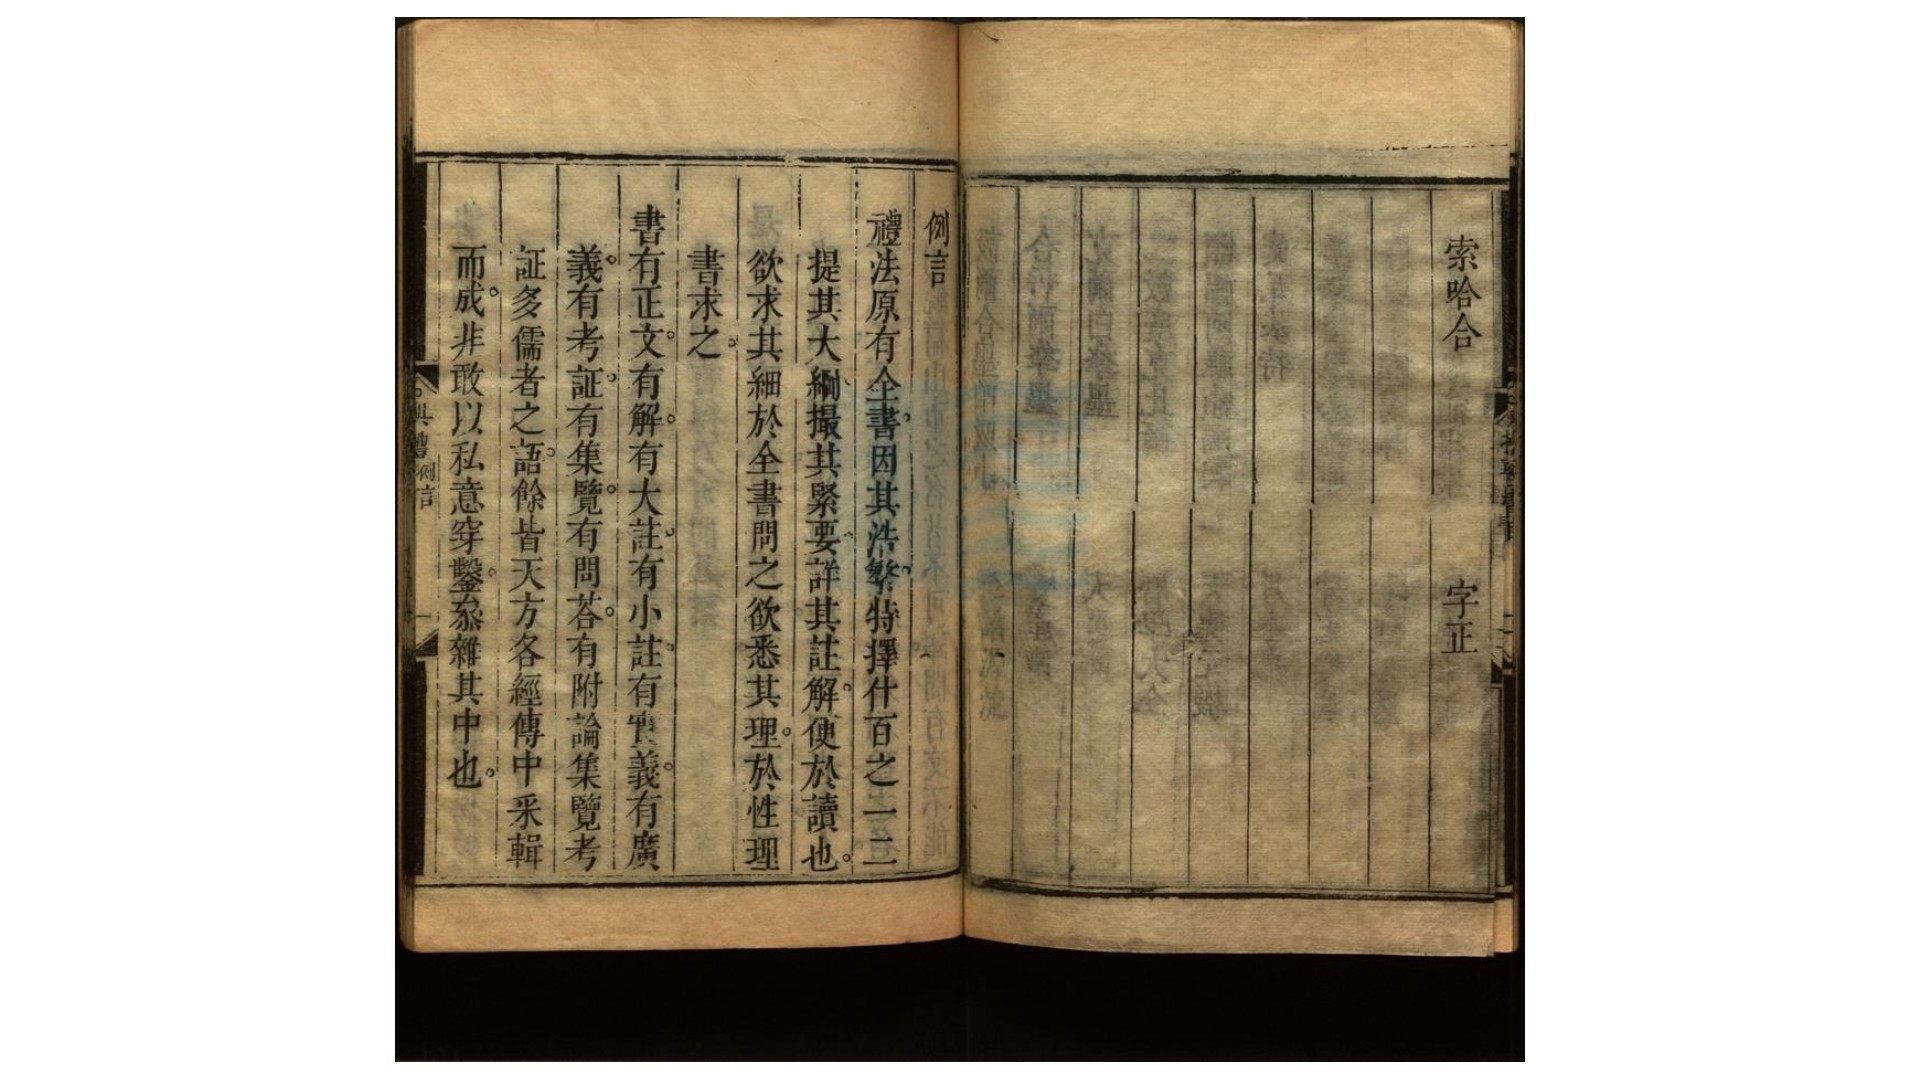 索哈合
字正
例言
禮法原有全書。因其浩繁。特擇什百之一二
提其大綱、撮其緊要、詳其註解。便於讀也。
欲求其細於全書問之欲悉其理。於性理
書求之。
書有正文。有解。有大註。有小註。有實義。有廣
義。有考証。有集覽。有問荅。有附論集覽考
証多儒者之語。餘皆天方各經傳中采輯
而成。非敢以私意穿鑿。忝雜其中也。
典禮 例言
一